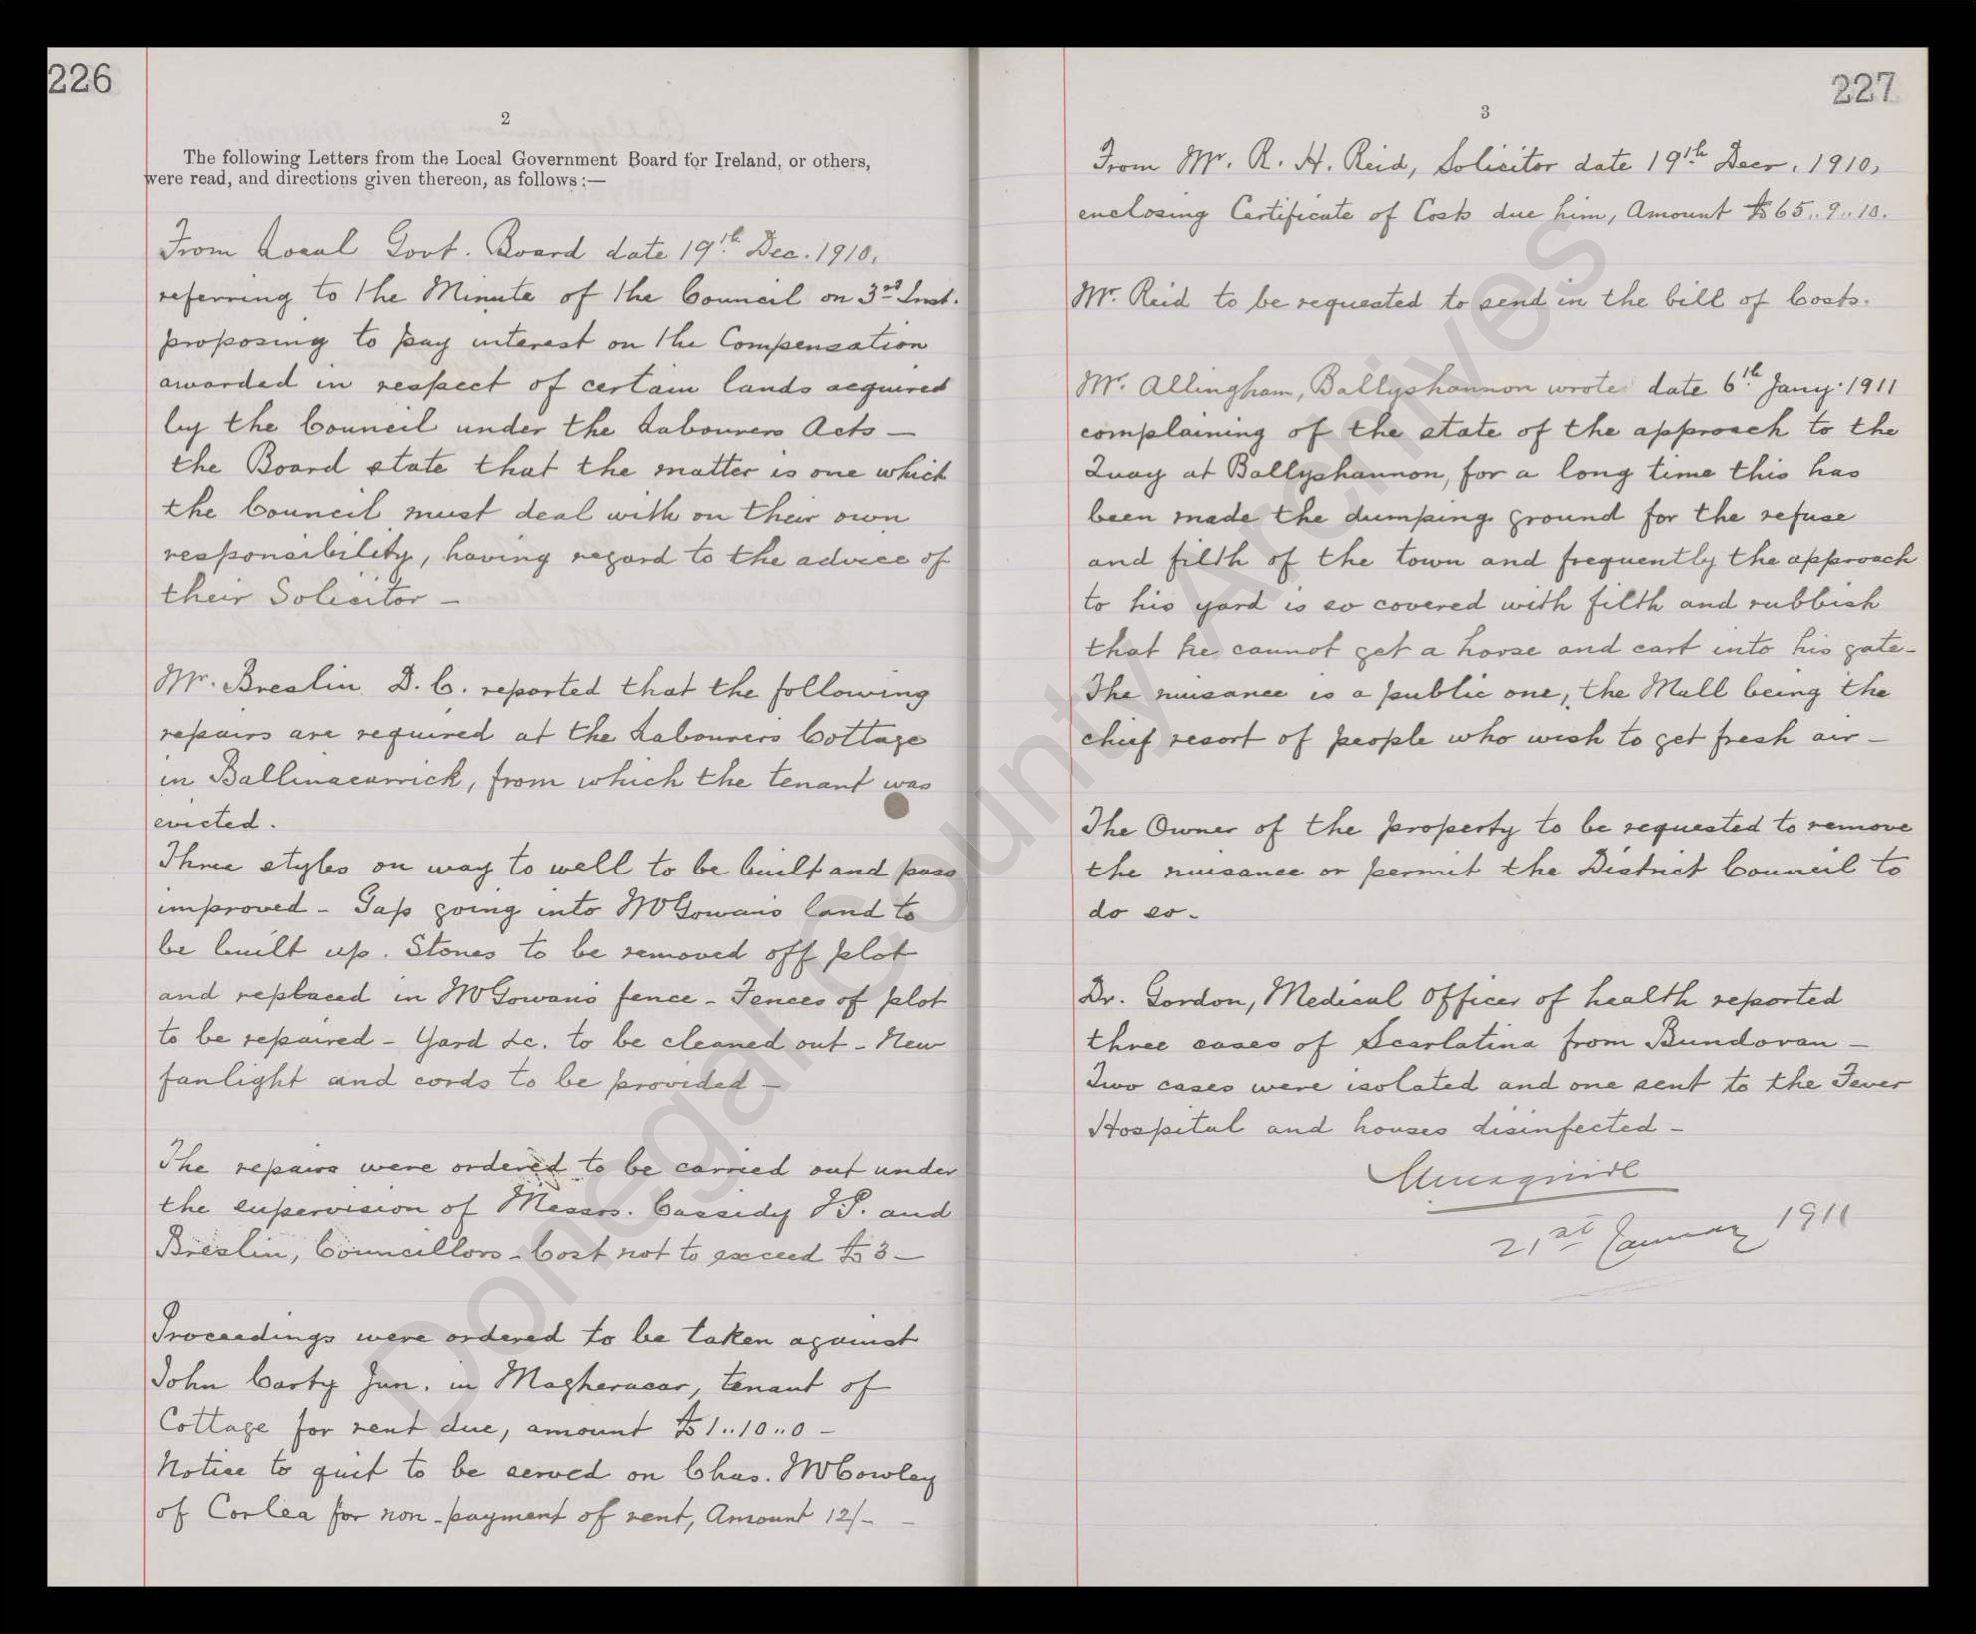 226
2
The following Letters from the Local Government Board for Ireland, or others,
were read, and directions given thereon, as follows:—
From Local Govt. Board date 19th Dec. 1910,
referring to the Minute of the Council on 3rd Inst.
proposing to pay interest on the Compensation
awarded in respect of certain lands acquired
by the Council under the Labourers Acts —
the Board state that the matter is one which
the Council must deal with on their own
responsibility, having regard to the advice of
their Solicitor —
Mr. Breslin D.C. reported that the following
repairs are required at the Labourers Cottage
in Ballinacarrick, from which the tenant was
evicted.
Three styles on way to well to be built and pass
improved - Gap going into McGowan's land to
be built up. Stones to be removed off plot
and replaced in McGowan's fence - Fences of plot
to be repaired - Yard &c. to be cleaned out - New
fanlight and cords to be provided —
The repairs were ordered to be carried out under
the supervision of Messrs. Cassidy J.P. and
Breslin, Councillors - Cost not to exceed £3 —
Proceedings were ordered to be taken against
John Carty Jun. in Magheracar, tenant of
Cottage for rent due, amount £1..10..0 —
Notice to quit to be served on Chas. McCowley
of Corlea for non-payment of rent, Amount 12/- —
227
3
From Mr. R. H. Reid, Solicitor date 19th Decr. 1910,
enclosing Certificate of Costs due him, Amount £65..9..10.
Mr. Reid to be requested to send in the bill of Costs.
Mr. Allingham, Ballyshannon wrote date 6th Jany. 1911
complaining of the state of the approach to the
Quay at Ballyshannon, for a long time this has
been made the dumping ground for the refuse
and filth of the town and frequently the approach
to his yard is so covered with filth and rubbish
that he cannot get a horse and cart into his gate -
The nuisance is a public one, the Mall being the
chief resort of people who wish to get fresh air —
The Owner of the property to be requested to remove
the nuisance or permit the District Council to
do so.
Dr. Gordon, Medical Officer of health reported
three cases of Scarlatina from Bundoran —
Two cases were isolated and one sent to the Fever
Hospital and houses disinfected —
21st January 1911
Donegal County Archives